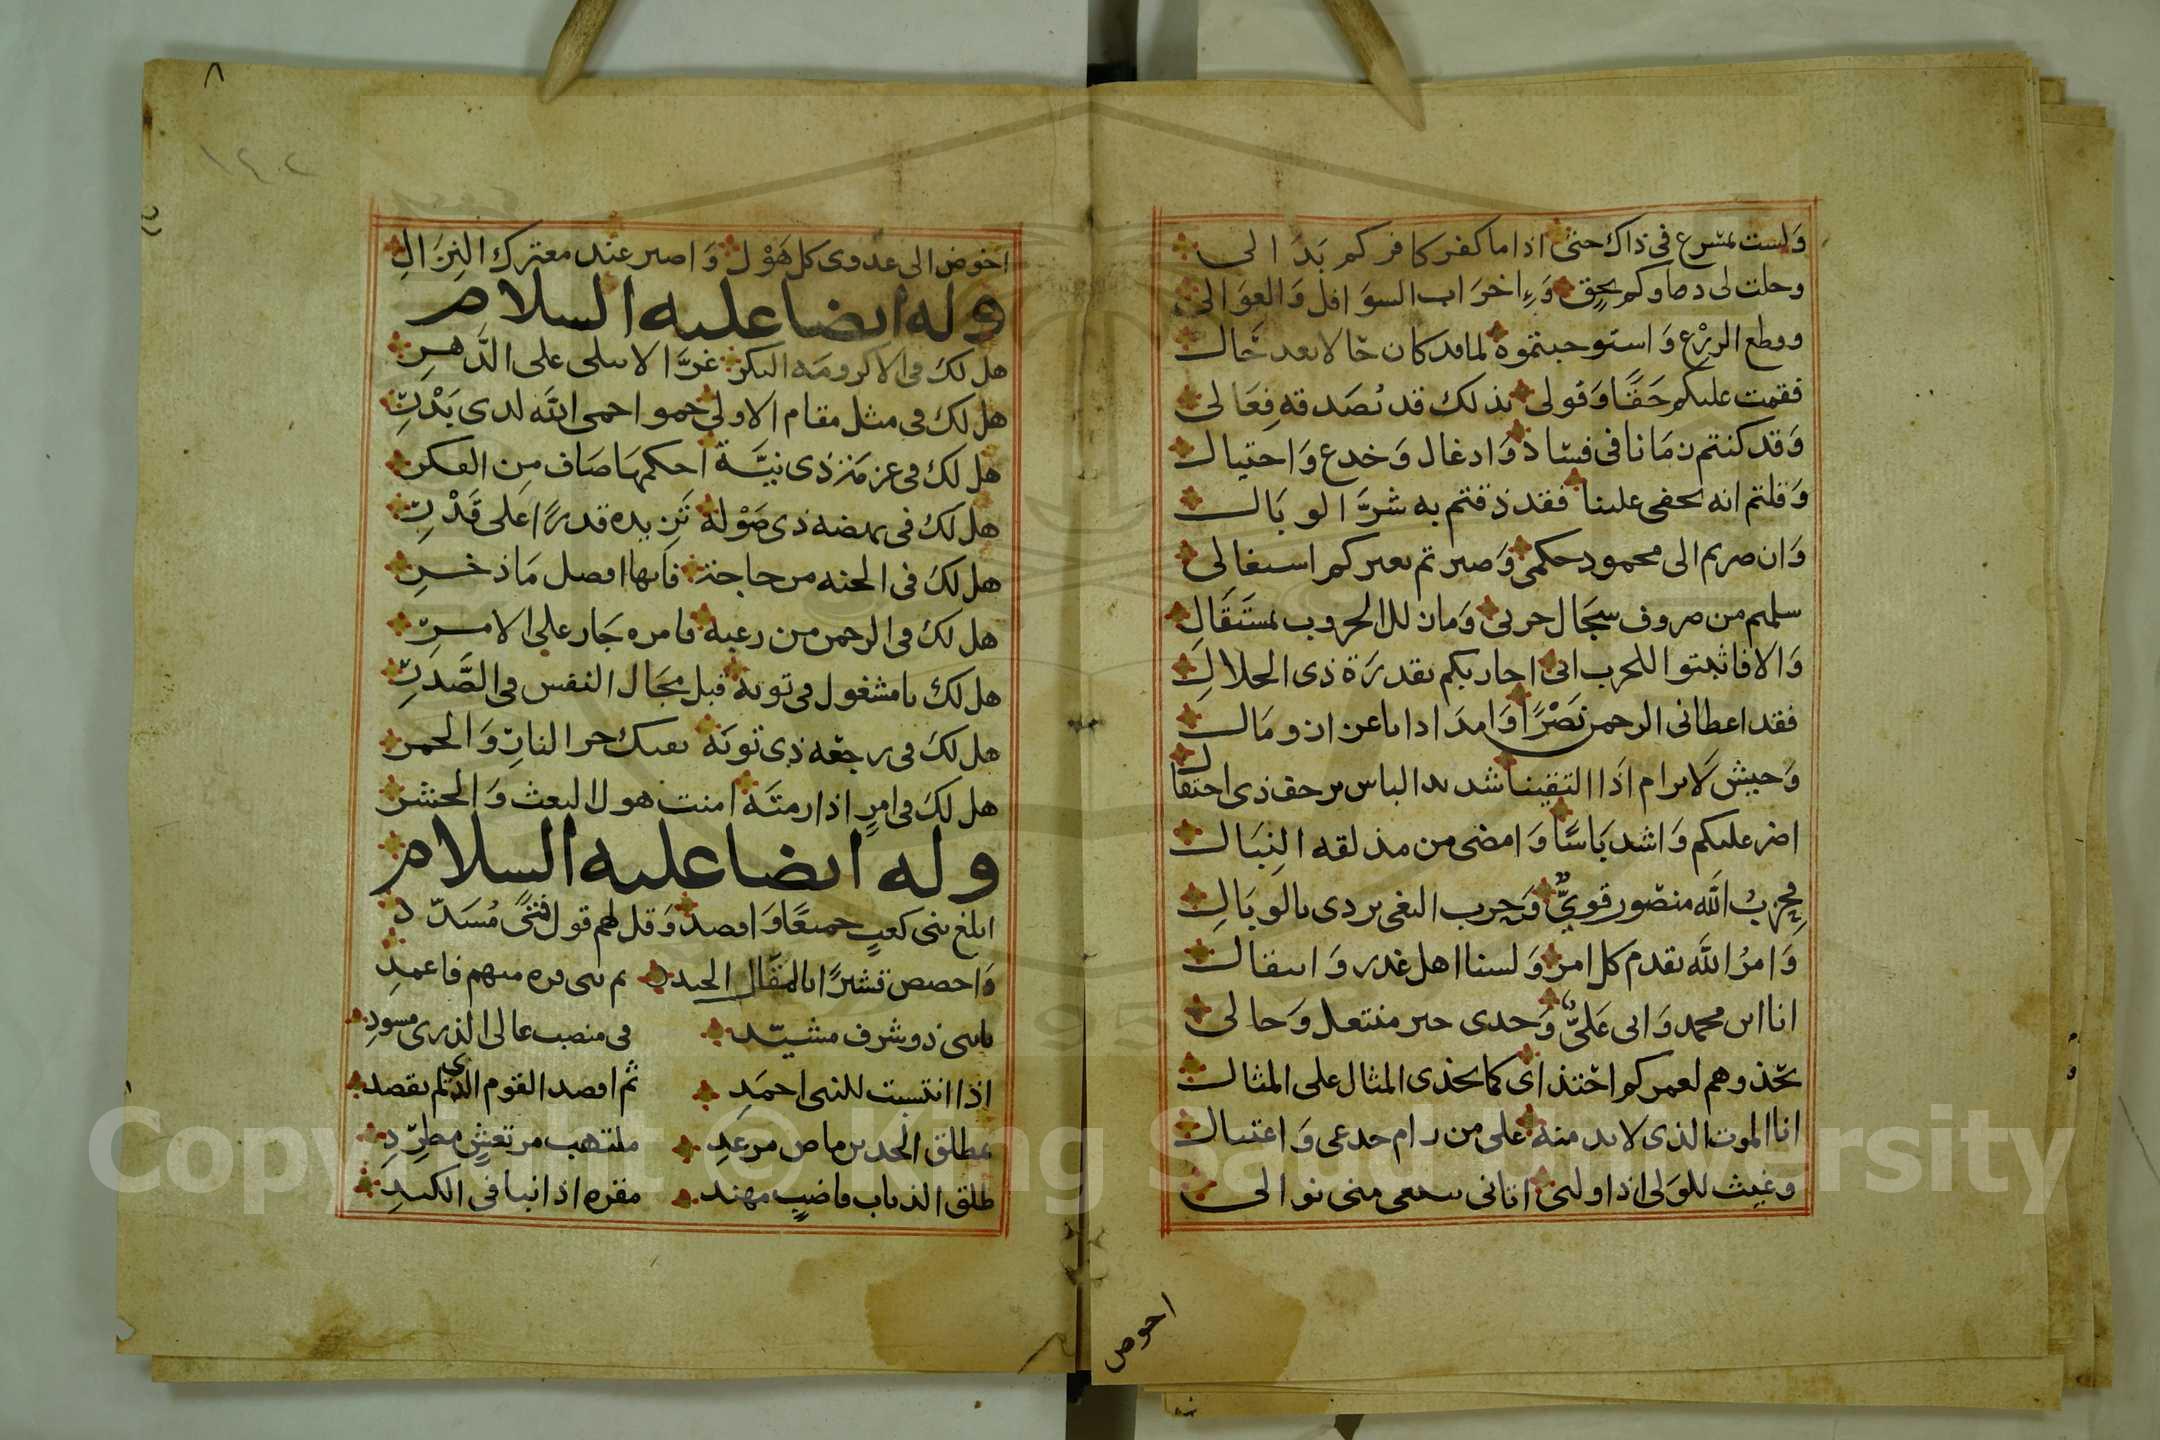 ولست بمسرع في ذاك حتى اذا ما كفر كافركم بدا لي
وحلت لي دماوكم بحق واخراب السوافل والعوالي
وقطع الزرع واستوجبتموه لما قد كان حالا بعد حال
فقمت عليكم حقا وقولي بذلك قد تصدقه فعالي
وقد كنتم زمانا في فساد وادغال وخدع واحتيال
وقلتم انه يخفى علينا فقد ذقتم به شر الوبال
وان صرتم الى محمود حكمي وصير تم اشتغالي
سلمتم من صروف سجال حربي وما نار الحروب بمستقال
والا فاثبتوا للحرب اني احاربكم بقدرة ذي الجلال
فقد اعطاني الرحمن نصرا وامدادا باعز ان ومال
وجيش لا يرام اذا التقينا شديد الباس احتفال
اضر عليكم واشد باسا وامضى من مذلقة النبال
فحزب الله منصور قوي وحزب البغي يردى بالوبال
وامر الله يقدم كل امر ولسنا اهل غدر وانتقال
انا ابن محمد وابي علي وجدي خير منتعل وحالي
تحذوهم لعمركم احتذاي كما يحذى المثال على المثال
انا الموت الذي لا بد منه على من رام خدعي واغتيال
وغيث للولي اذا ولي اتاني يبتغي مني نوالي
احوض
٨
١٤٠٢
اخوض الى عدوي كل هول واصبر عند معترك النزال
وله ايضا عليه السلام
هل لك في الاكرومة البكر غرا لا تبلى على الدهر
هل لك في مثل مقام الاولى حموا حمى الله لدى بدر
هل لك في عزمة ذي نية احكمها صاف من الفكر
هل لك في نهضة ذي صولة تزيده قدرا على قدر
هل لك في الجنة من حاجة فانها افضل ما ذخر
هل لك في الرحمن من رغبة فامره جار على الامر
هل لك يا مشغول في توبة قبل مجال النفس في الصدر
هل لك في رجعة ذي توبة تقيك حر النار والجمر
هل لك في امر اذا رمته امنت هول البعث والحشر
وله ايضا عليه السلام
ابلغ بني كعب جميعا واقصد وقل لهم قول فتى مسدد
واخصص قشيرا بالمقال الجيد ثم بني قره منهم فاعمد
ياسي ذو شرف مشيد في منصب عالي الذرى مسود
اذا انتسبت للنبي احمد ثم اقصد القوم الذي لم يقصد
بمطلق الحدين ماض مرعد ملتهب مرتعش مطرد
طلق الذباب قاضب مهند مقره اذا نبا في الكبد
Copyright © King Saud University